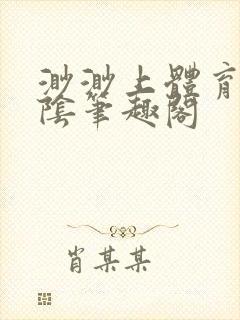 渺渺上體育
陰筆趣閣
肖某某